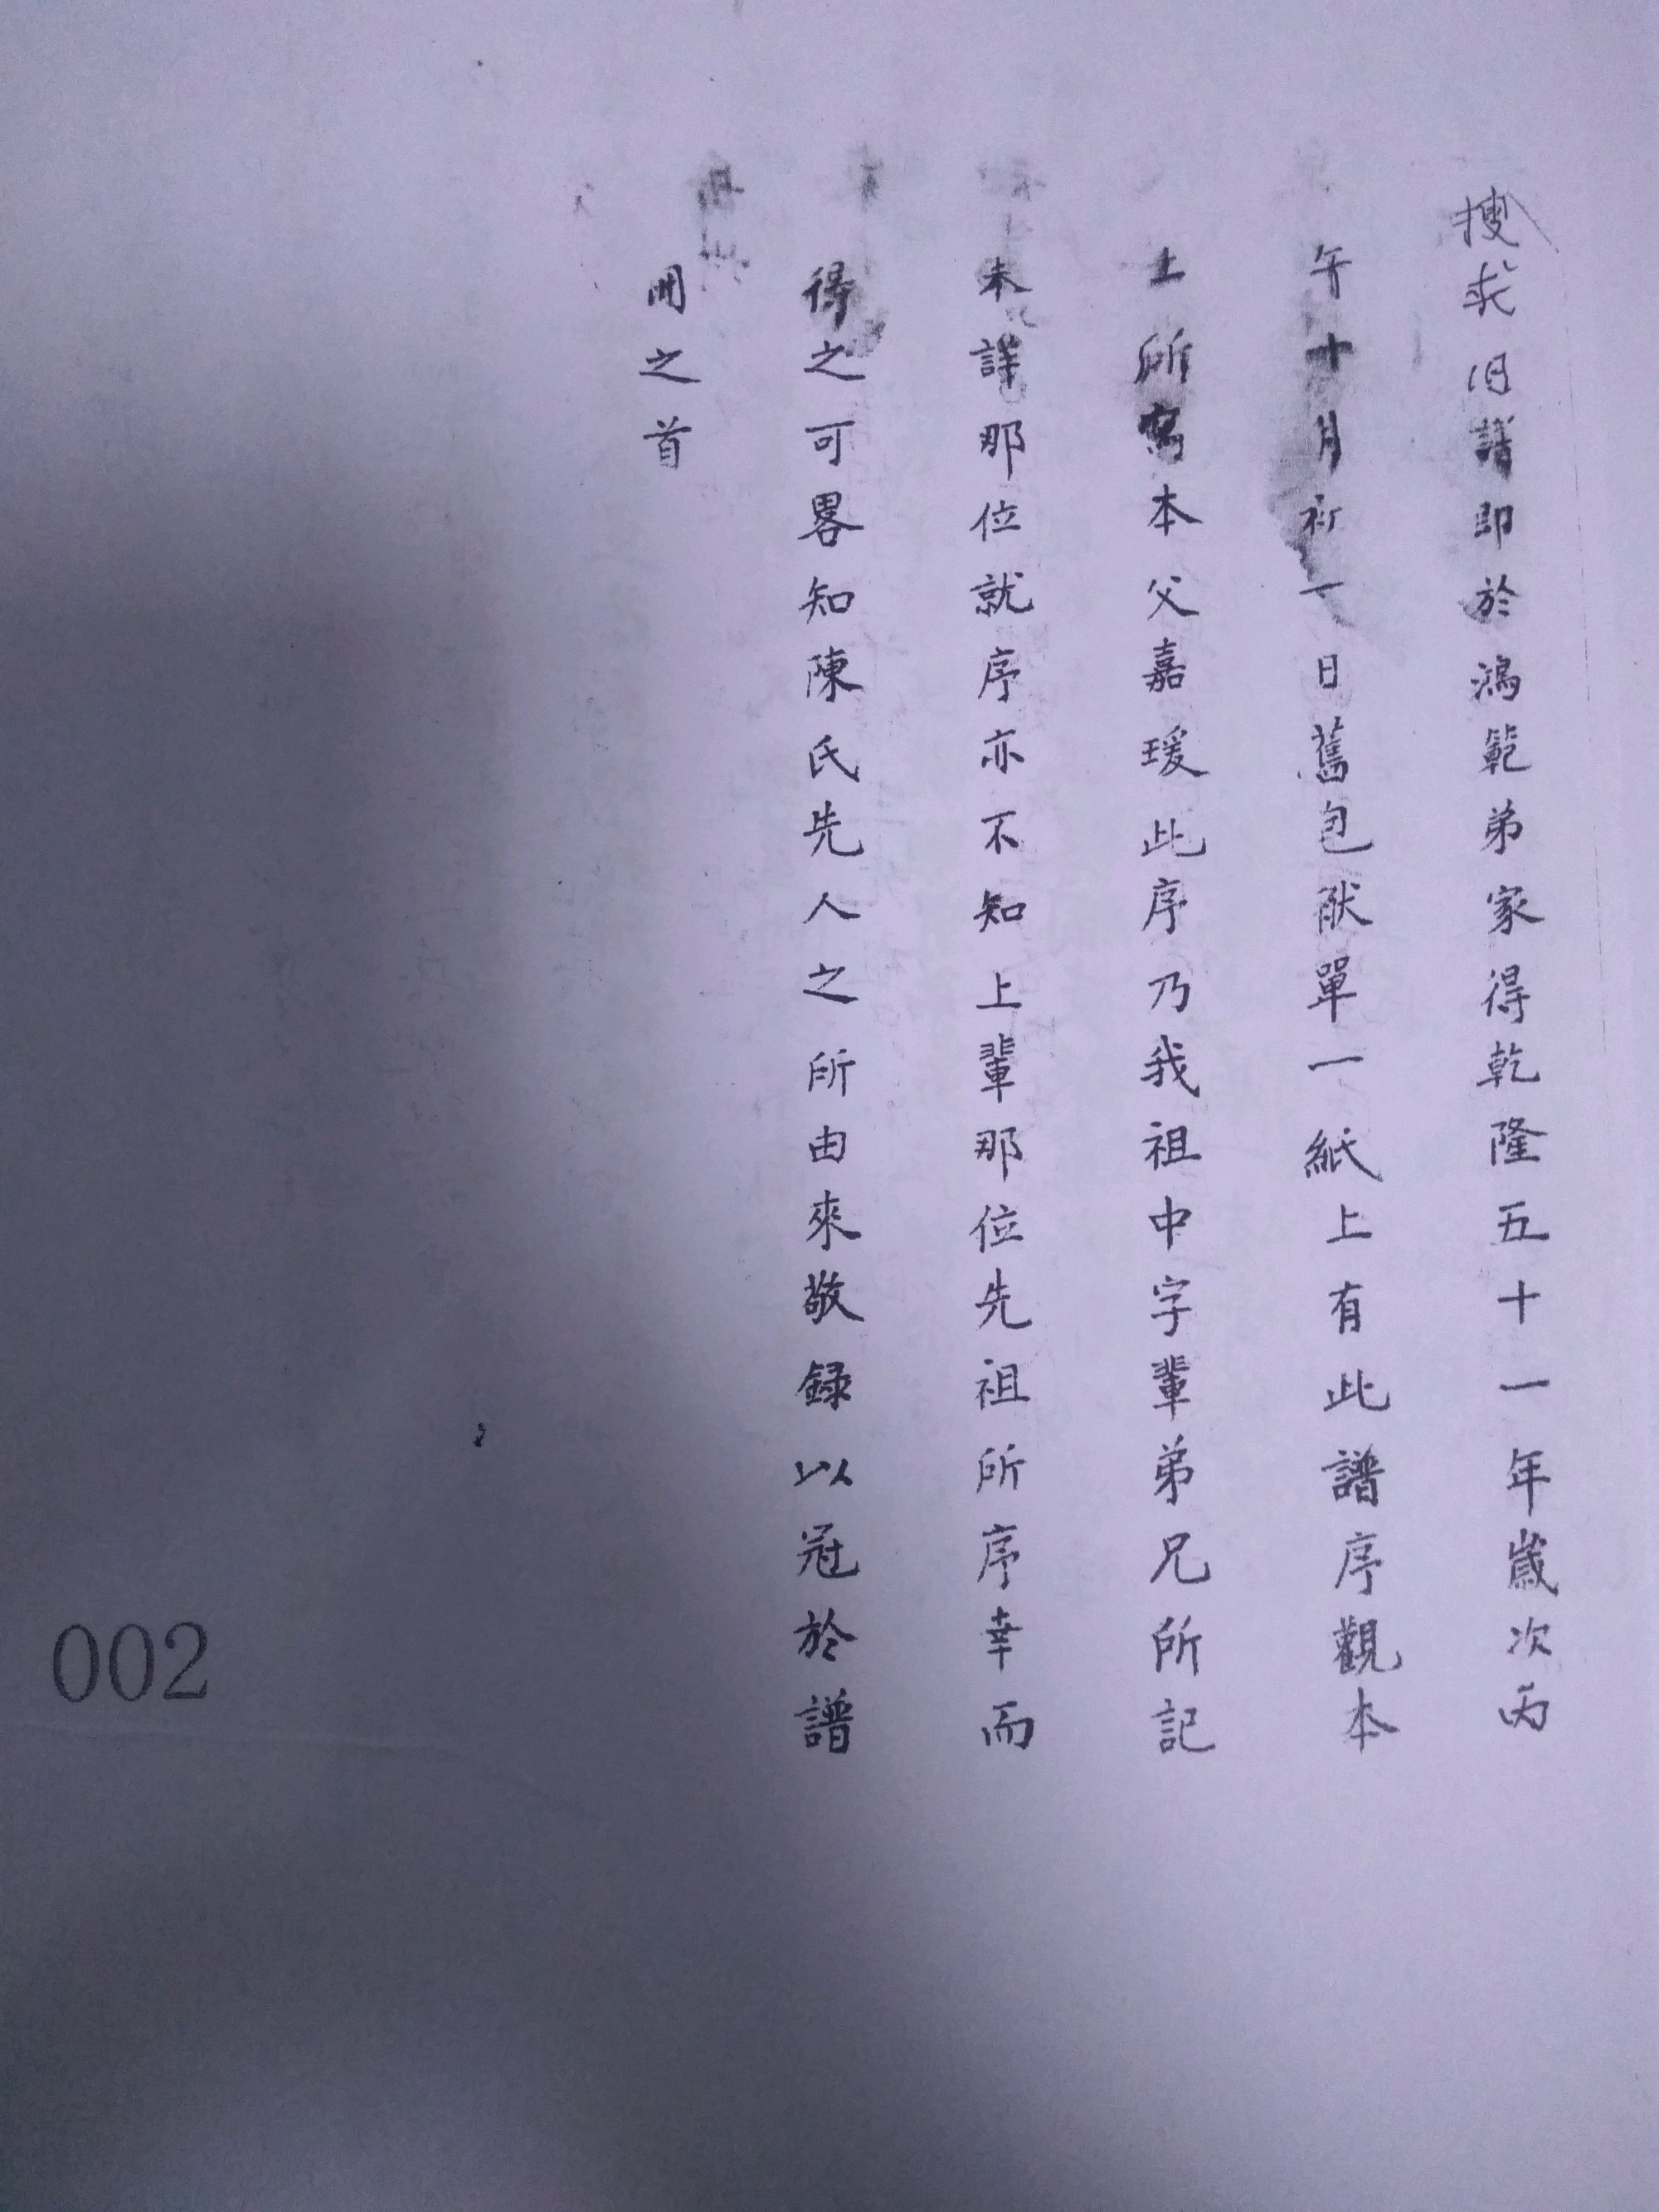 搜求旧譜即於鴻範弟家得乾隆五十一年歲次丙
午十月初一日舊包猷單一紙上有此譜序觀本
上所寫本父嘉瑗此序乃我祖中字輩弟兄所記
未詳那位就序亦不知上輩那位先祖所序幸而
得之可畧知陳氏先人之所由來敬録以冠於譜
用之首
002